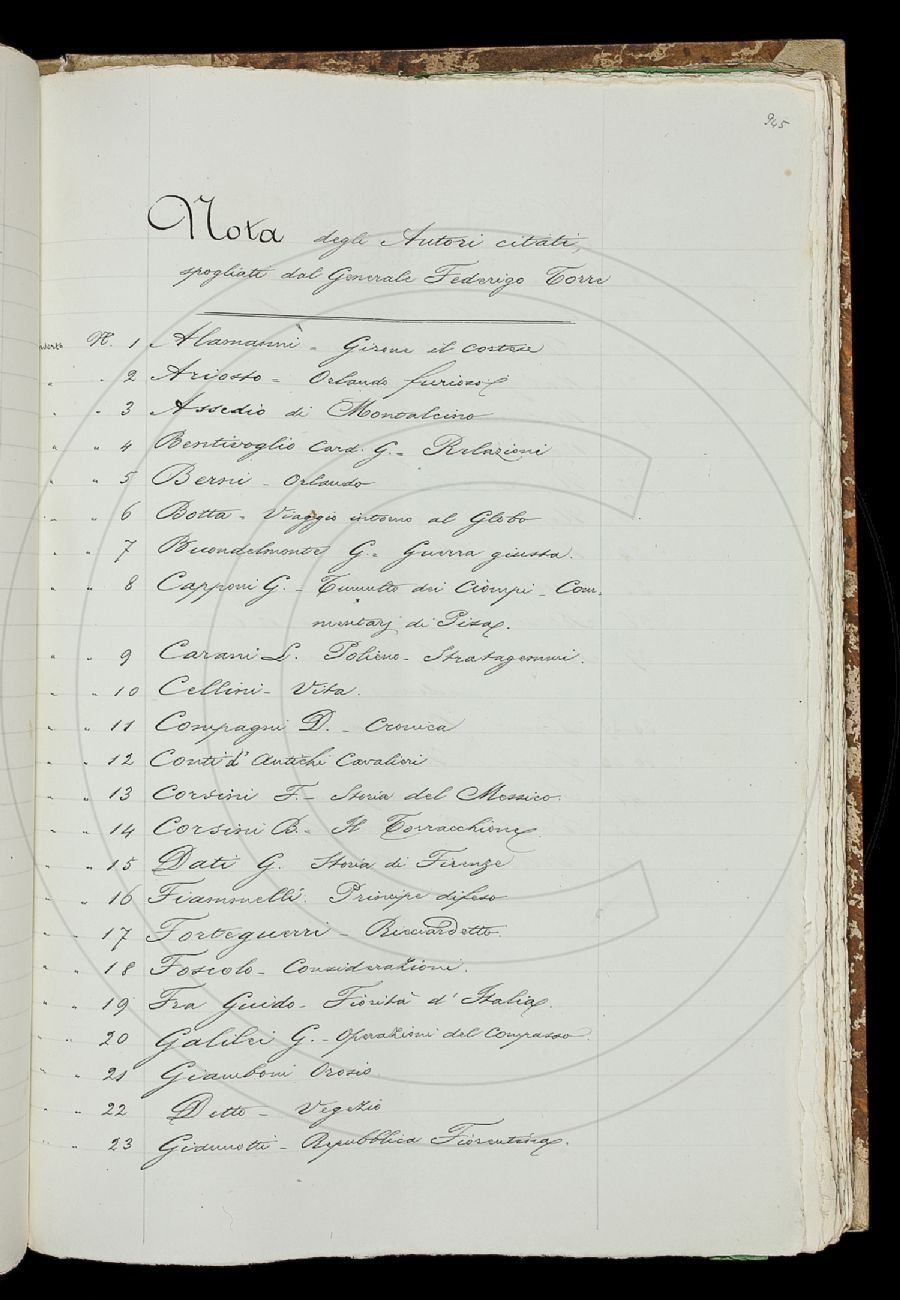 945
Nota degli Autori citati,
spogliati dal Generale Federigo Torre
N. 1 Alamanni - Girone il cortese
" " 2 Ariosto - Orlando furioso
" " 3 Assedio di Montalcino
" " 4 Bentivoglio Card. G. - Relazioni
" " 5 Berni - Orlando
" " 6 Botta - Viaggio intorno al Globo
" " 7 Buondelmonti G. - Guerra giusta.
" " 8 Capponi G. - Tumulto dei Ciompi - Com-
mentarj di Pisa.
" " 9 Carani L. Polieno - Stratagemmi.
" " 10 Cellini - Vita.
" " 11 Compagni D. - Cronica
" " 12 Conti d'Antichi Cavalieri
" " 13 Corsini F. - Storia del Messico.
" " 14 Corsini B. - Il Torracchione
" " 15 Dati G. Storia di Firenze
" " 16 Fiammelli. Principe difeso
" " 17 Forteguerri - Ricciardetto.
" " 18 Foscolo - Considerazioni.
" " 19 Fra Guido - Fiorità d'Italia.
" " 20 Galilei G. - Operazioni del Compasso.
" " 21 Giamboni Orosio.
" " 22 Detto - Vegezio
" " 23 Giannotti - Repubblica Fiorentina.